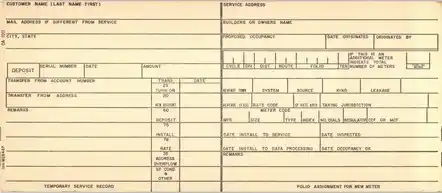 CUSTOMER NAME (LAST NAME FIRST)
SERVICE ADDRESS
MAIL ADDRESS IF DIFFERENT FROM SERVICE
BUILDERS OR OWNERS NAME
CITY, STATE
PROPOSED OCCUPANCY
DATE ORIGINATED
ORIGINATED BY
IF THIS IS AN
ADDITIONAL METER
INDICATE TOTAL
NUMBER OF METERS
CYCLE
DIST.
ROUTE
FOLIO
DEPOSIT
SERIAL NUMBER
DATE
AMOUNT
TRANSFER FROM ACCOUNT NUMBER
TRANS
DATE
TURN ON
SYSTEM
SOURCE
KIND
LEAKAGE
TRANSFER FROM ADDRESS
RATE CODE
TAXING JURISDICTION
REMARKS
DEPOSIT
METER CODE
MFR
SIZE
TYPE
INDEX
NO. DIALS
REGULATOR
INSTALL
DATE INSTALL TO SERVICE
DATE INSPECTED
RATE
DATE INSTALL TO DATA PROCESSING
DATE OCCUPANCY
ADDRESS
OVERFLOW
REMARKS
SP COND
&
OTHER
TEMPORARY SERVICE RECORD
FOLIO ASSIGNMENT FOR NEW METER